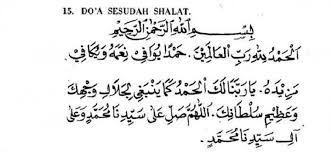 15. DO'A SESUDAH SHALAT.
بِسْمِ اللهِ الرَّحْمٰنِ الرَّحِيْمِ
اَلْحَمْدُ لِلّٰهِ رَبِّ الْعَالَمِيْنَ. حَمْدًا يُوَافِيْ نِعَمَهُ وَيُكَافِيْ
مَزِيْدَهُ. يَارَبَّنَالَكَ الْحَمْدُ كَمَا يَنْبَغِيْ لِجَلَالِ وَجْهِكَ
وَعَظِيْمِ سُلْطَانِكَ. اَللّٰهُمَّ صَلِّ عَلَى سَيِّدِنَا مُحَمَّدٍ وَعَلَى
آلِ سَيِّدِنَا مُحَمَّدٍ.